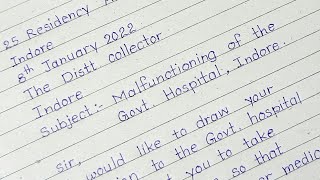 25 Residency
Indore
8th January 2022
The Distt collector
Indore
Subject:- Malfunctioning of the
Govt. Hospital, Indore.
sir,
would like to draw your
to the Govt. hospital
you to take
so that